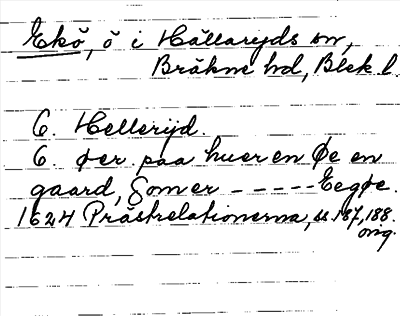 Ekö, ö i Hällaryds sn,
Bräkne hd, Blek l
6. Hellerijd.
6. Øer paa huer en Øe en
gaard, Som er - - - - - Eegøe.
1624 Prästrelationerna, s. 187, 188.
orig.